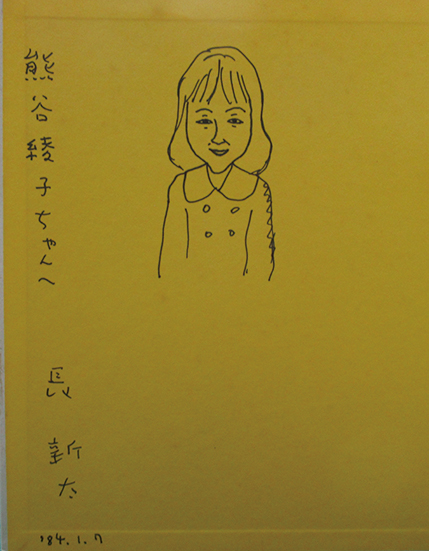 熊谷綾子ちゃんへ
長新太
'84.1.7